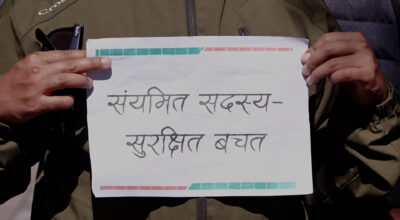 संयमित सदस्य-
सुरक्षित बचत